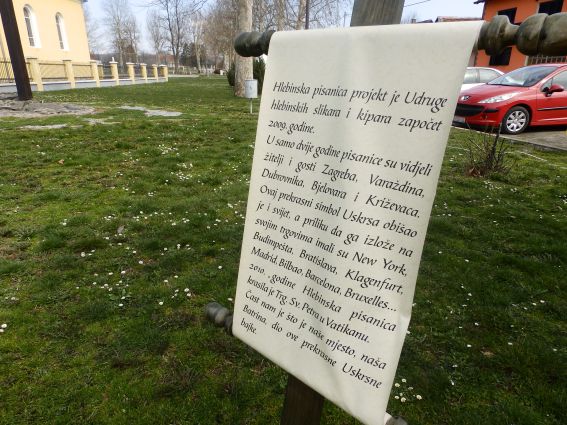 Hlebinska pisanica projekt je Udruge
hlebinskih slikara i kipara započet
2009. godine.
U samo dvije godine pisanice su vidjeli
žitelji i gosti Zagreba, Varaždina,
Dubrovnika, Bjelovara i Križevaca.
Ovaj prekrasni simbol Uskrsa obišao
je i svijet, a priliku da ga izlože na
svojim trgovima imali su New York,
Budimpešta, Bratislava, Klagenfurt,
Madrid, Bilbao, Barcelona, Bruxelles...
2010. - godine Hlebinska pisanica
krasila je Trg Sv. Petra u Vatikanu.
Čast nam je što je naše mjesto, naša
Batrina, dio ove prekrasne Uskrsne
bajke.